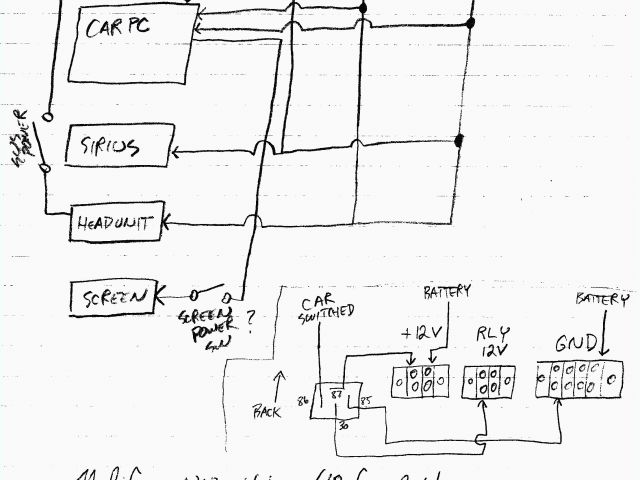 CAR PC
SUB
POWER
SIRIUS
HEADUNIT
SCREEN
SCREEN
POWER
SW
?
CAR
SWITCHED
BATTERY
BATTERY
+12V
RLY
12V
GND
BACK
86
87
85
30